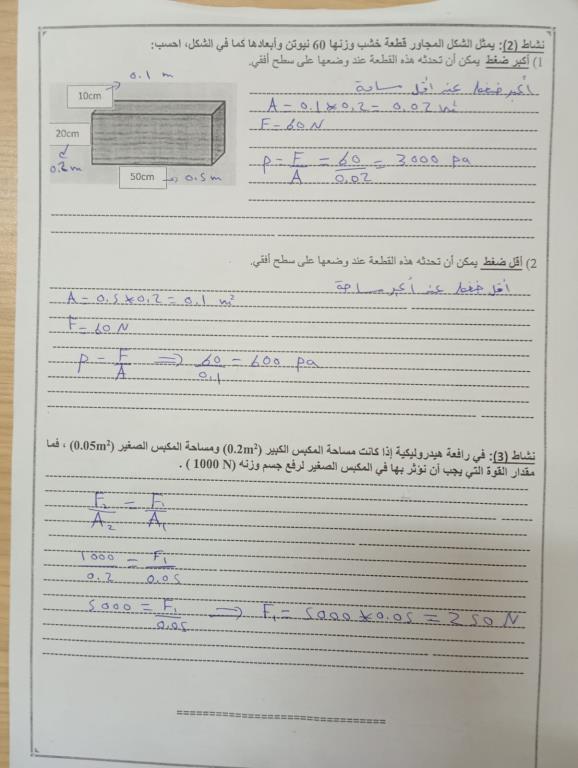 نشاط (2): يمثل الشكل المجاور قطعة خشب وزنها 60 نيوتن وأبعادها كما في الشكل، احسب:
1) أكبر ضغط يمكن أن تحدثه هذه القطعة عند وضعها على سطح أفقي.
0.1 m
10cm
20cm
0.2 m
50cm → 0.5 m
أكبر ضغط عند أقل مساحة
A = 0.1 * 0.2 = 0.02 m²
F = 60 N
P = F/A = 60/0.02 = 3000 pa
2) أقل ضغط يمكن أن تحدثه هذه القطعة عند وضعها على سطح أفقي.
أقل ضغط عند أكبر مساحة
A = 0.5 * 0.2 = 0.1 m²
F = 60 N
P = F/A ⇒ 60/0.1 = 600 pa
نشاط (3): في رافعة هيدروليكية إذا كانت مساحة المكبس الكبير (0.2m²) ومساحة المكبس الصغير (0.05m²) ، فما
مقدار القوة التي يجب أن نؤثر بها في المكبس الصغير لرفع جسم وزنه (1000 N) .
F₂/A₂ = F₁/A₁
1000/0.2 = F₁/0.05
5000 = F₁/0.05 ⇒ F₁ = 5000 * 0.05 = 250 N